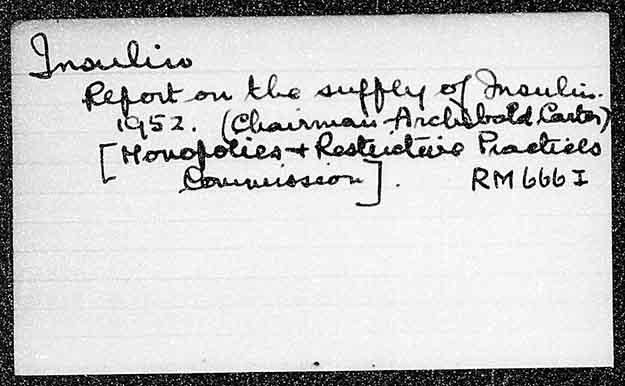 Insulin
Report on the supply of Insulin.
1952. (Chairman Archibald Carter)
[Monopolies + Restrictive Practices
Commission]. RM 666 I